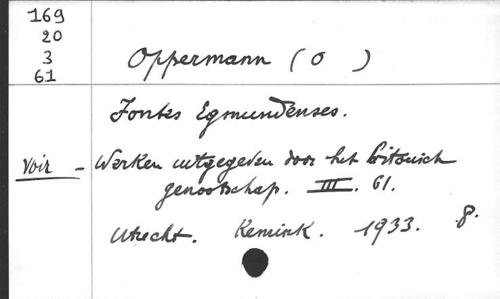 169
20
3
61
Oppermann (O )
Fontes Egmundenses.
Voir - Werken uitgegeven door het historisch
genootschap. III. 61.
Utrecht. Kemink. 1933. 8.